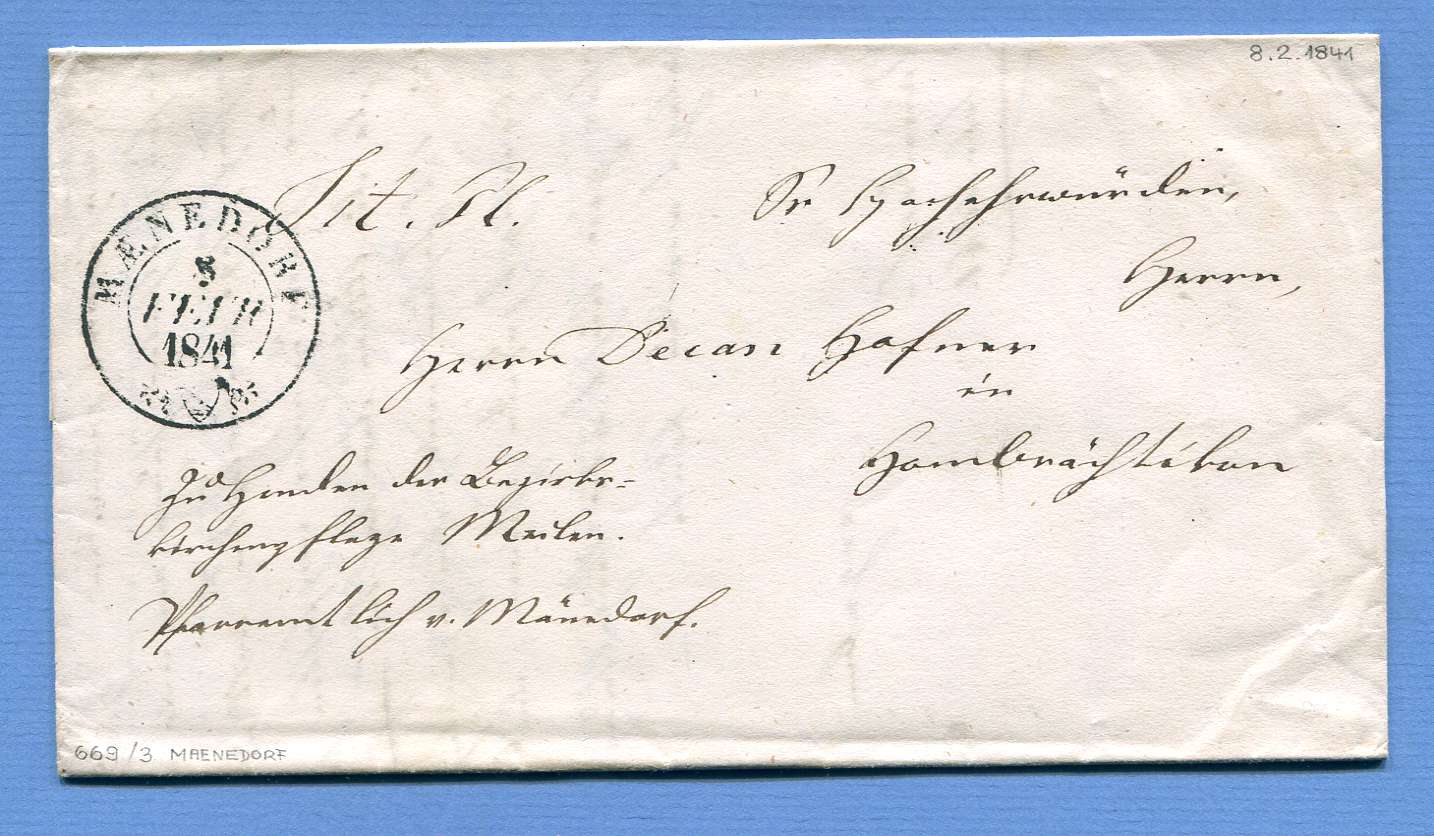 8.2.1841
Tit. Pl.
Sr Hochehrwürden,
Herrn,
Herrn Decan Hafner
in
Hombrächtikon
MÆNEDORF
FEBR
1841
Zu Handen der Bezirks-
kirchenpflege Meilen.
Pfarramtlich v. Mänedorf.
669/3 MAENEDORF